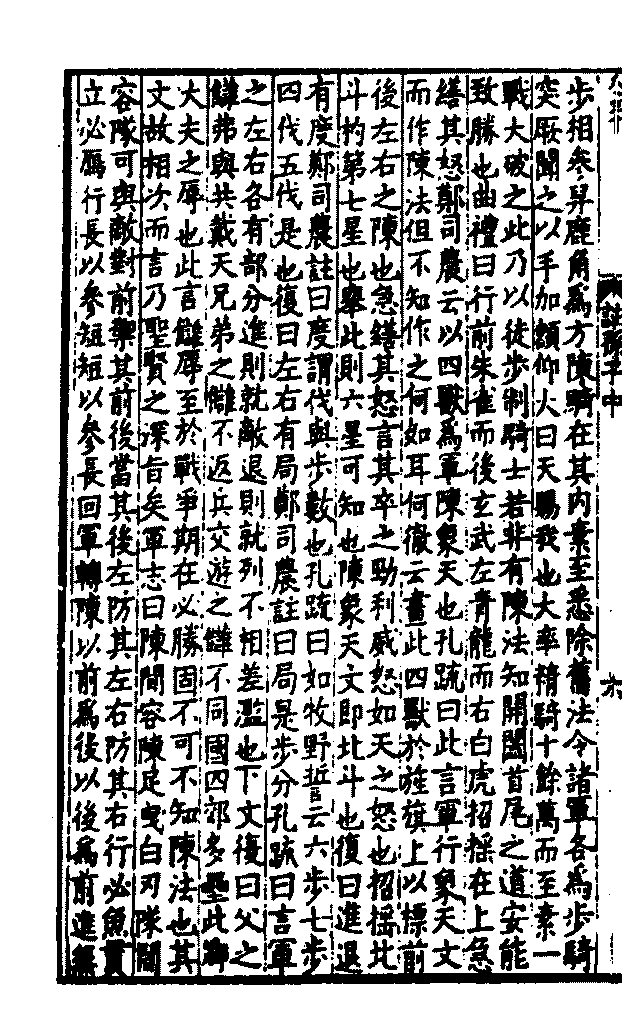 註孫子中
六
步相參舁鹿角爲方陳騎在其内秦至悉除舊法令諸軍各爲步騎
突厥聞之以手加額仰火曰天賜我也大率精騎十餘萬而至素一
戰大破之此乃以徒步制騎士若非有陳法知開闔首尾之道安能
致勝也曲禮曰行前朱雀而後玄武左青龍而右白虎招搖在上急
繕其怒鄭司農云以四獸爲軍陳象天也孔疏曰此言軍行象天文
而作陳法但不知作之何如耳何徹云畫此四獸於旌旗上以標前
後左右之陳也急繕其怒言其卒之勁利威怒如天之怒也招搖北
斗杓第七星也舉此則六星可知也陳象天文即北斗也復曰進退
有度鄭司農註曰度謂伐與步數也孔疏曰如牧野誓云六步七步
四伐五伐是也復曰左右有局鄭司農註曰局是步分孔疏曰言軍
之左右各有部分進則就敵退則就列不相差濫也下文復曰父之
讎弗與共戴天兄弟之讎不返兵交遊之讎不同國四郊多壘此卿
大夫之辱也此言讎辱至於戰爭期在必勝固不可不知陳法也其
文故相次而言乃聖賢之深旨矣軍志曰陳間容陳足曳白刃隊間
容隊可與敵對前禦其前後當其後左防其左右防其右行必魚貫
立必鴈行長以參短短以參長回軍轉陳以前爲後以後爲前進無